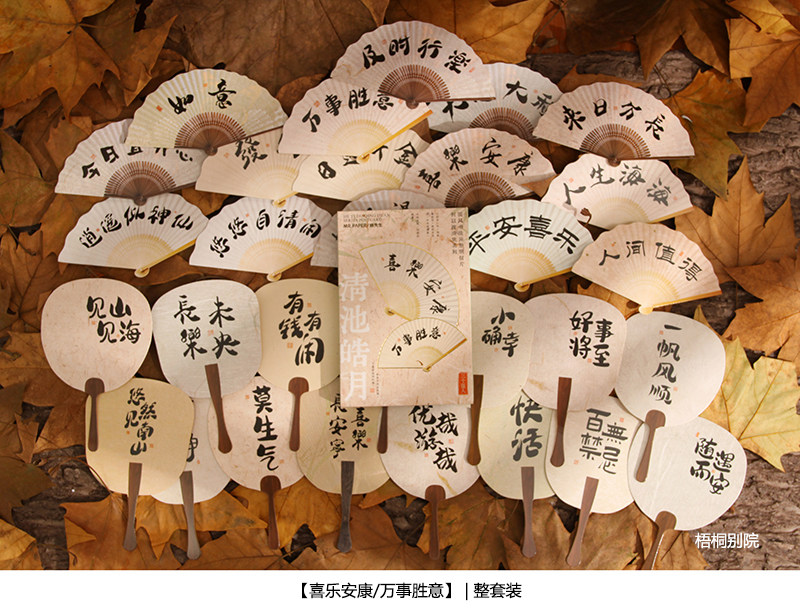 及时行樂
如意
万事胜意
来日方長
發
樂安康
人生海海
逍遥似神仙
悠悠自清闲
平安喜乐
人间值得
MR.PAPER
喜樂安康
万事胜意
清池皓月
见山
见海
長樂
未央
有钱
有闲
小确幸
好事
将至
一帆风顺
悠然
见南山
莫生气
長安寧
喜樂
优哉
游哉
快活
百無
禁忌
随遇
而安
梧桐别院
【喜乐安康/万事胜意】 | 整套装